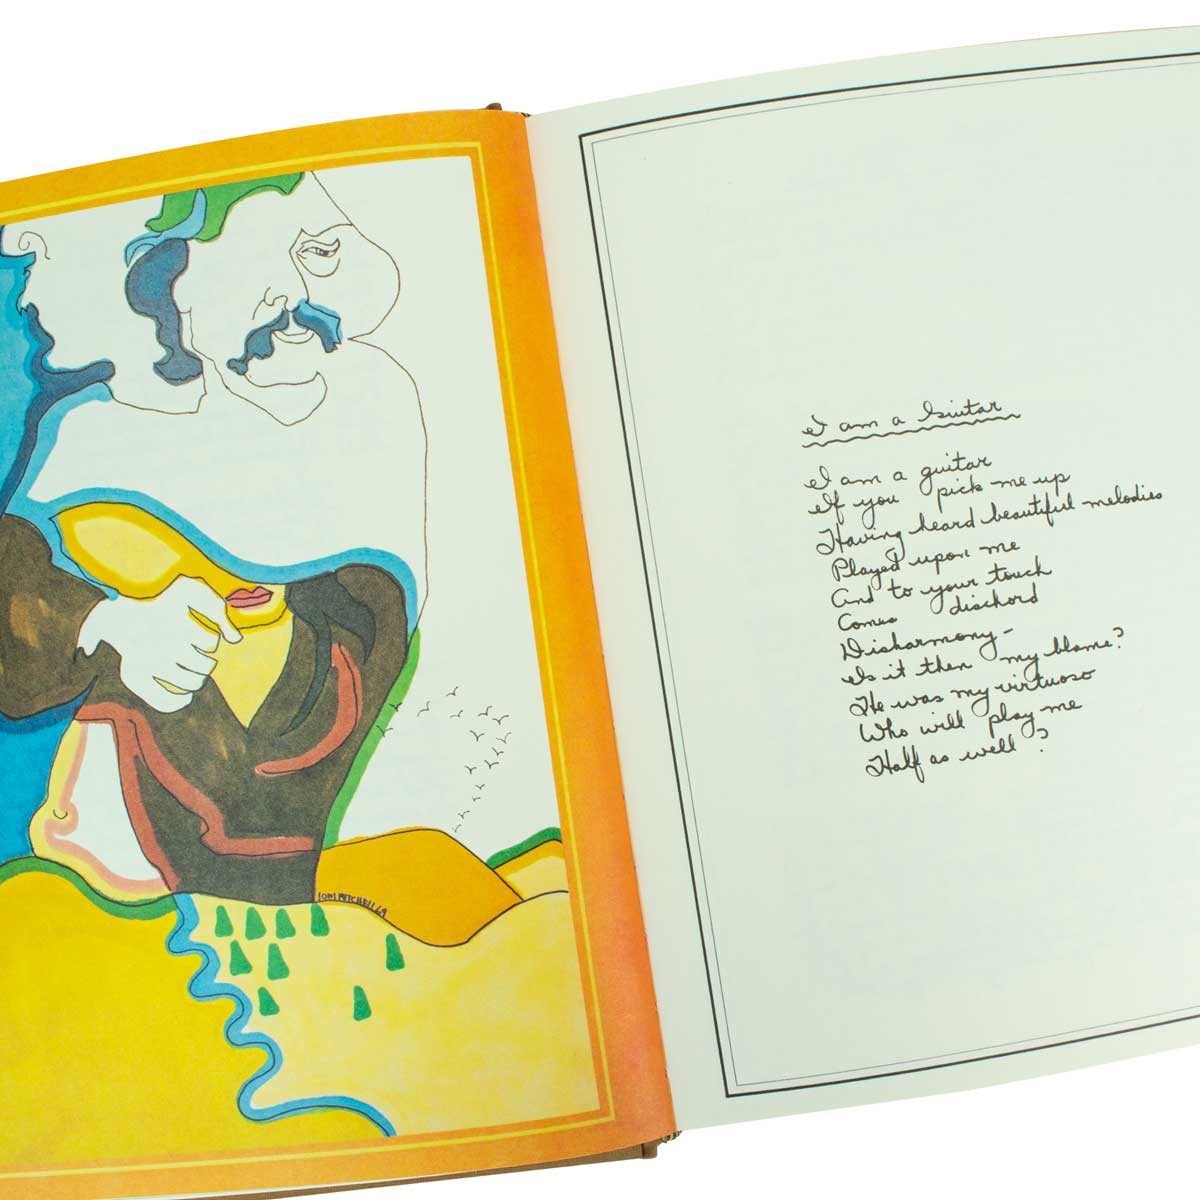 JONI MITCHELL 69
I am a Guitar
I am a guitar
If you pick me up
Having heard beautiful melodies
Played upon me
And to your touch
Comes dischord
Disharmony-
Is it then my blame?
He was my virtuoso
Who will play me
Half as well?